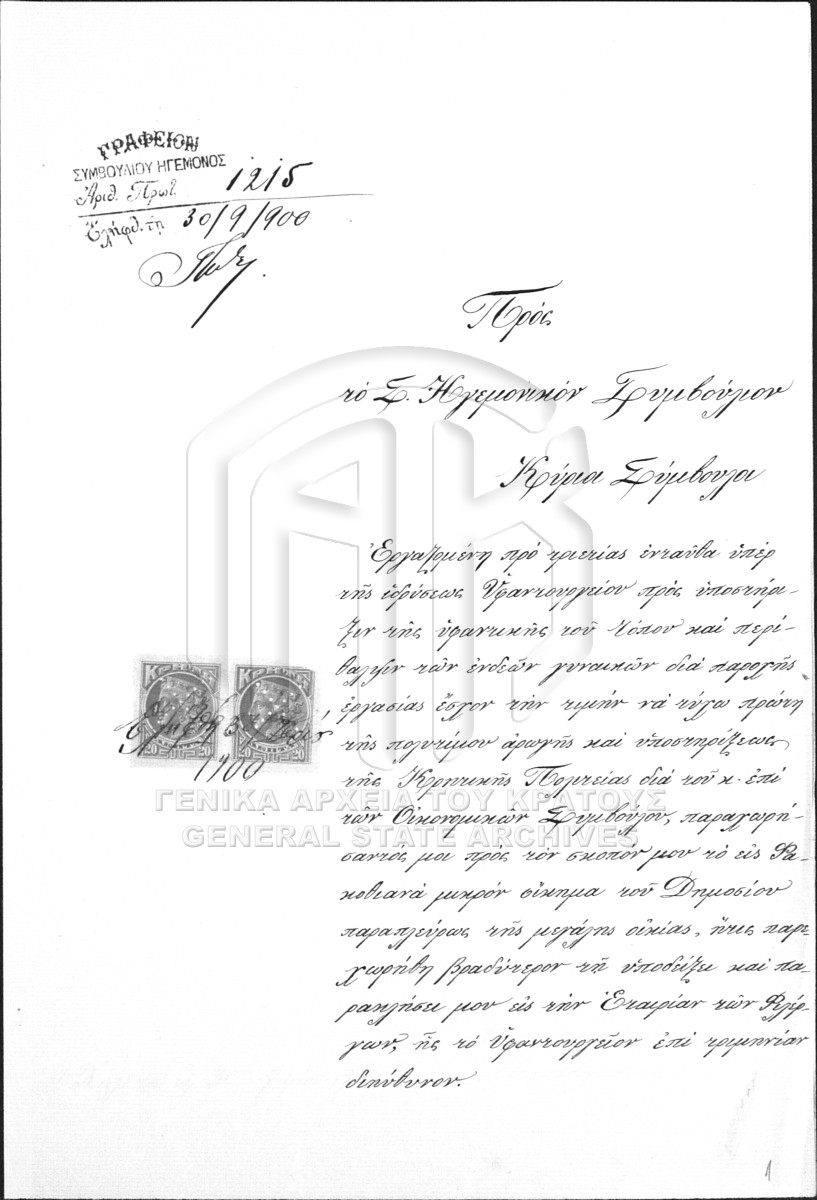 ΓΡΑΦΕΙΟΝ
ΣΥΜΒΟΥΛΙΟΥ ΗΓΕΜΟΝΟΣ
Ἀριθ. Πρωτ. 1215
Ἐλήφθ. τῇ 30/9/900
Πρός
τό Σ. Ἡγεμονικόν Σύμβουλον
Κύριε Σύμβουλε
Ἐργαζομένη πρό τριετίας ἐνταῦθα ὑπέρ
τῆς ἱδρύσεως Ὑφαντουργείου πρός ὑποστήρι-
ξιν τῆς ὑφαντικῆς τοῦ τόπου καί περί-
θαλψιν τῶν ἐνδεῶν γυναικῶν διά παροχῆς
ἐργασίας ἔσχον τήν τιμήν νά τύχω πρώτη
τῆς πολυτίμου ἀρωγῆς καί ὑποστηρίξεως
τῆς Κρητικῆς Πολιτείας διά τοῦ κ. ἐπί
τῶν Οἰκονομικῶν Συμβούλου, παραχωρή-
σαντός μοι πρός τόν σκοπόν μου τό εἰς
μικρόν οἴκημα τοῦ Δημοσίου
παραπλεύρως τῆς μεγάλης οἰκίας, ἥτις παρε-
χωρήθη βραδύτερον τῇ ὑποδείξει καί πα-
ρακλήσει μου εἰς τήν Ἑταιρίαν τῶν Φιλέρ-
γων, ἧς τό Ὑφαντουργεῖον ἐπί τριμηνίαν
διηύθυνον.
ΚΡΗΤΗ ΚΡΗΤΗ
20 20 20 20
1900
ΓΕΝΙΚΑ ΑΡΧΕΙΑ ΤΟΥ ΚΡΑΤΟΥΣ
GENERAL STATE ARCHIVES
1